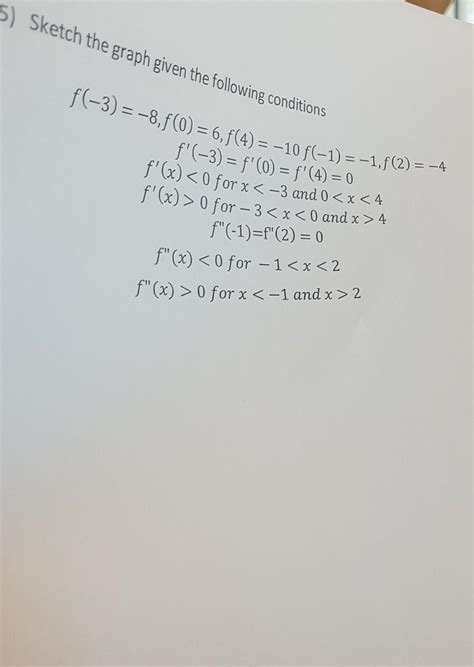 5) Sketch the graph given the following conditions
f(−3) = −8, f(0) = 6, f(4) = −10 f(−1) = −1, f(2) = −4
f'(−3) = f'(0) = f'(4) = 0
f'(x) < 0 for x < −3 and 0 < x < 4
f'(x) > 0 for − 3 < x < 0 and x > 4
f"(-1)=f"(2) = 0
f"(x) < 0 for − 1 < x < 2
f"(x) > 0 for x < −1 and x > 2